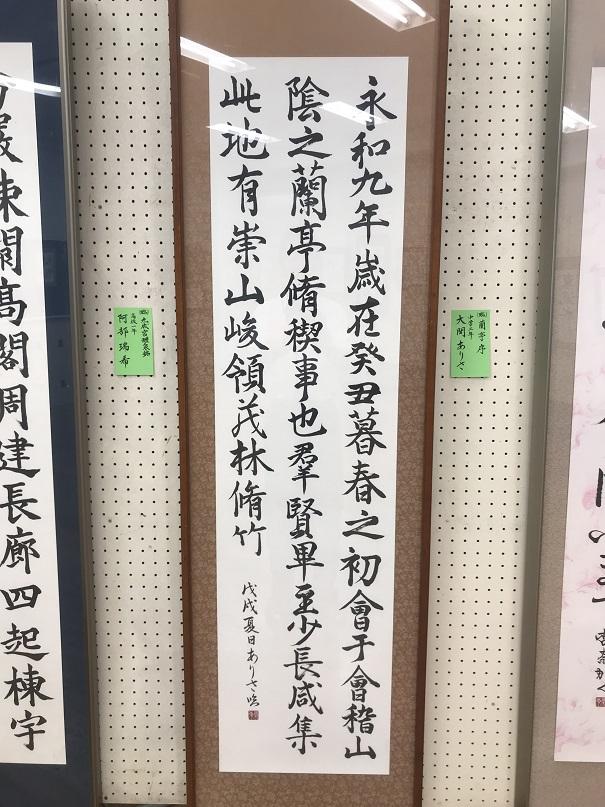 蘭亭序
大関ありさ
永和九年歲在癸丑暮春之初會于會稽山
陰之蘭亭脩稧事也羣賢畢至少長咸集
此地有崇山峻領茂林脩竹
戊戌夏日ありさ臨
九成宮醴泉銘
高校一年
阿部瑞希
巖竦闕高閣周建長廊四起棟宇